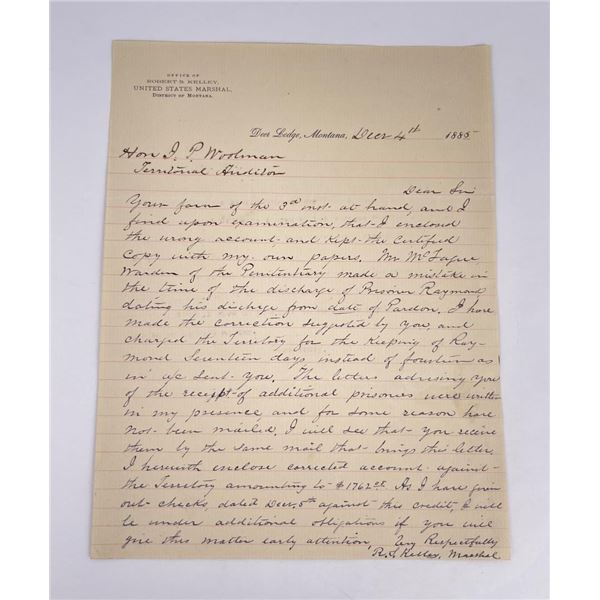 OFFICE OF
ROBERT S. KELLEY,
UNITED STATES MARSHAL,
DISTRICT OF MONTANA.
Deer Lodge, Montana, Decr 4th 1885
Hon J. P. Woolman
Territorial Auditor
Dear Sir
Your favor of the 3d inst. at hand, and I
find upon examination, that I enclosed
the wrong account and kept the Certified
Copy with my own papers. Mr McTague
Warden of the Penitentiary made a mistake in
the time of the discharge of Prisoner Raymond,
dating his discharge from date of Pardon. I have
made the correction suggested by you, and
charged the Territory for the keeping of Ray-
mond Seventeen days instead of fourteen as
in a/c sent you. The letters advising you
of the receipt of additional prisoners were written
in my presence and for some reason have
not been mailed. I will see that you receive
them by the same mail that brings this letter.
I herewith enclose corrected account against
the Territory amounting to $1762
As I have given
out checks, dated Decr. 5th against this credit, I will
be under additional obligations if you will
give this matter early attention, Very Respectfully
R. S. Kelley, Marshal